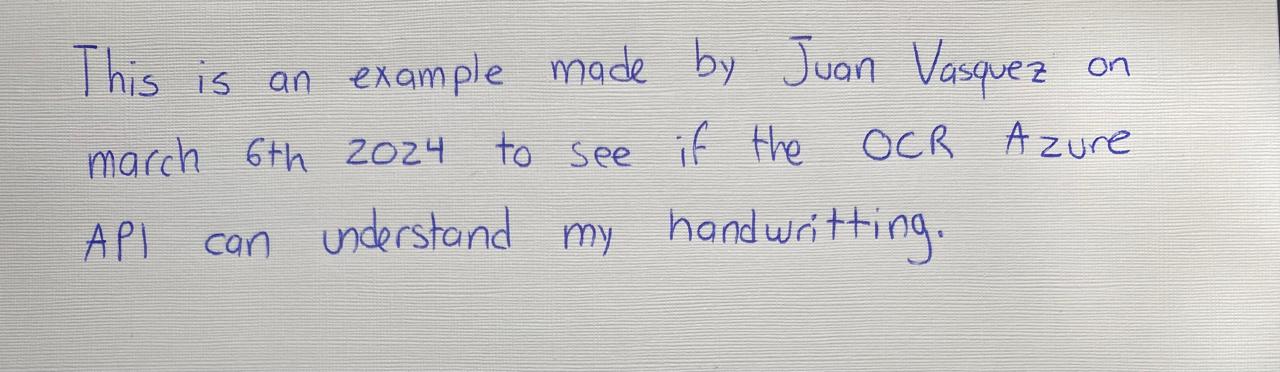 This is an example made by Juan Vasquez on
march 6th 2024 to see if the OCR Azure
API can understand my handwritting.